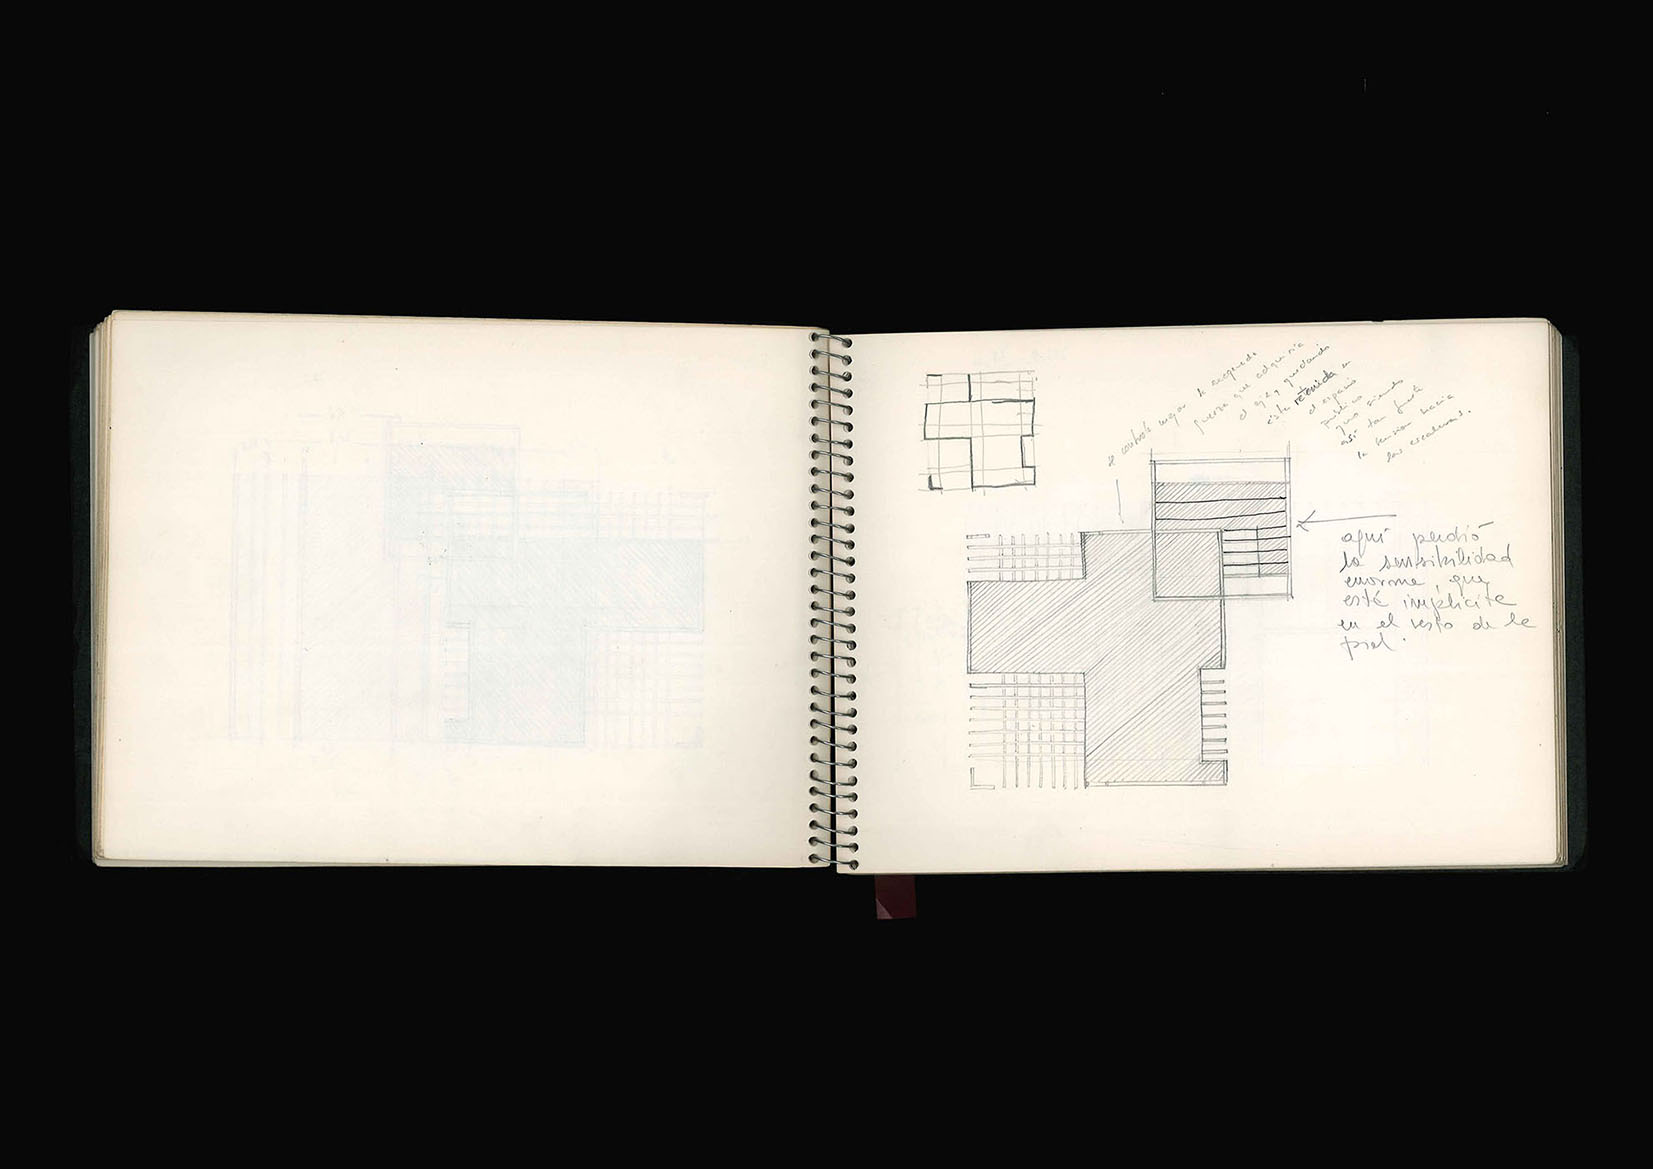 se controla mejor la
fuerza que adquiría
el eje y quedando
ésta retenida en
el espacio
público
no siendo
así tan fuerte
la tensión hacia
las escaleras.
aquí perdió
la sensibilidad
enorme, que
esté implícite
en el resto de le
piel.